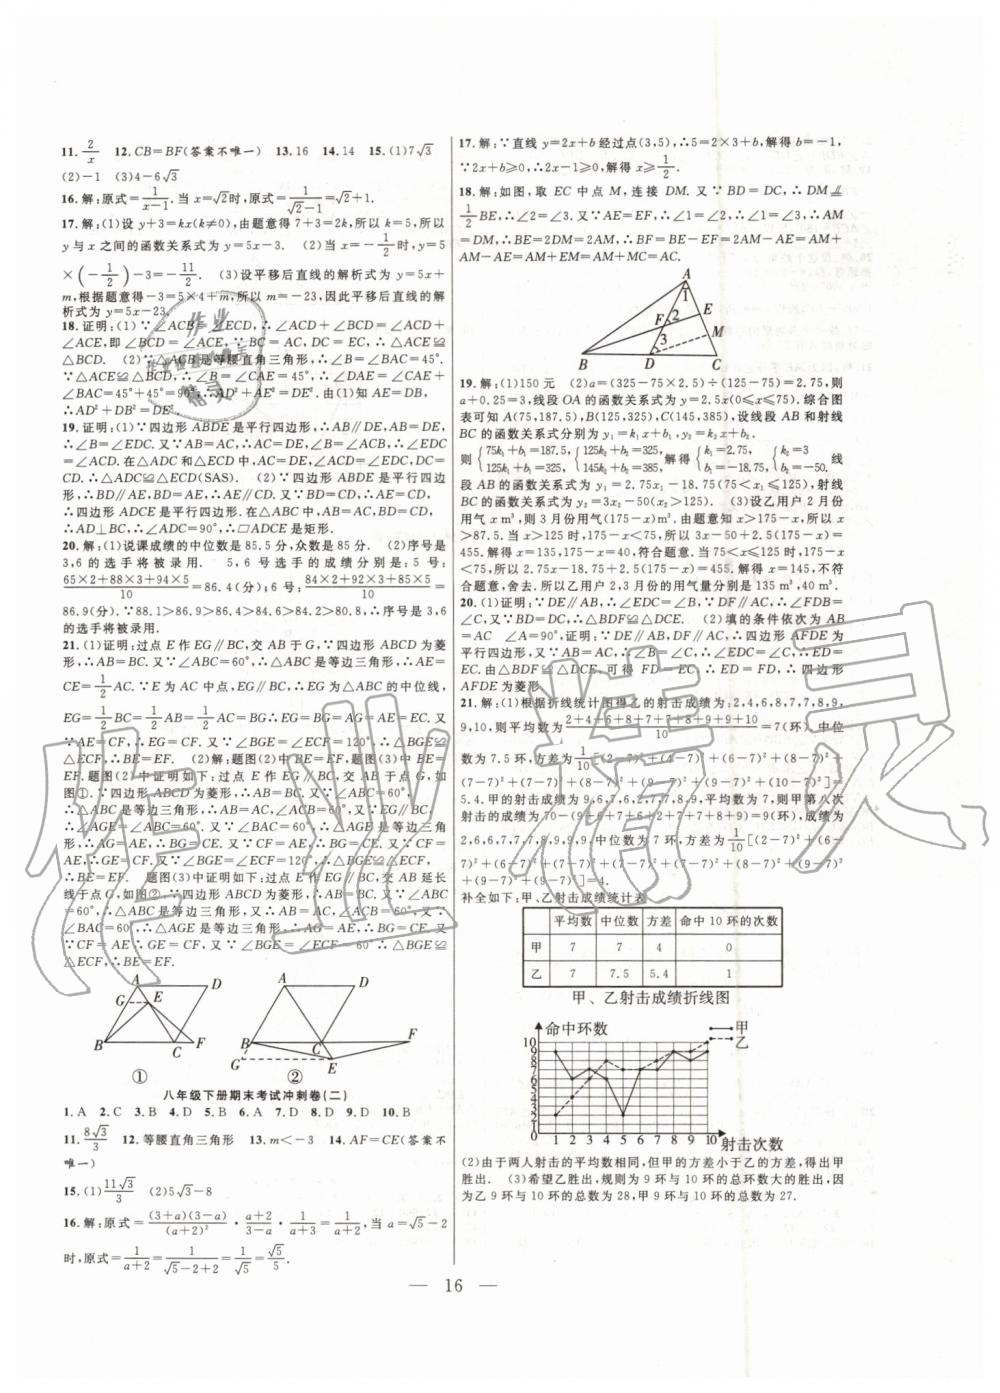 11. 2/x　12. CB=BF(答案不唯一)　13. 16　14. 14　15. (1)7√3
(2)-1　(3)4-6√3
16. 解:原式=1/(x-1). 当 x=√2时,原式=1/(√2-1)=√2+1.
17. 解:(1)设 y+3=kx(k≠0),由题意得7+3=2k,所以 k=5,所以
y 与 x 之间的函数关系式为 y=5x-3.　(2)当 x=-1/2时,y=5
×(-1/2)-3=-11/2.　(3)设平移后直线的解析式为 y=5x+
m,根据题意得-3=5×4+m,所以 m=-23,因此平移后直线的解
析式为 y=5x-23.
18. 证明:(1)∵∠ACB=∠ECD,∴∠ACD+∠BCD=∠ACD+
∠ACE,即∠BCD=∠ACE,∵BC=AC,DC=EC,∴△ACE≌
△BCD.　(2)∵△ACB是等腰直角三角形,∴∠B=∠BAC=45°.
∵△ACE≌△BCD,∴∠B=∠CAE=45°.∴∠DAE=∠CAE+
∠BAC=45°+45°=90°,∴AD²+AE²=DE².由(1)知AE=DB,
∴AD²+DB²=DE².
19. 证明:(1)∵四边形 ABDE是平行四边形,∴AB∥DE,AB=DE,
∴∠B=∠EDC.又∵AB=AC,∴AC=DE,∠B=∠ACB,∴∠EDC
=∠ACD.在△ADC和△ECD中,AC=ED,∠ACD=∠EDC,DC=
CD.∴△ADC≌△ECD(SAS).　(2)∵四边形 ABDE 是平行四边
形,∴BD∥AE,BD=AE,∴AE∥CD.又∵BD=CD,∴AE=CD,
∴四边形 ADCE是平行四边形.在△ABC中,AB=AC,BD=CD,
∴AD⊥BC,∴∠ADC=90°,∴□ADCE是矩形.
20. 解:(1)说课成绩的中位数是85.5分,众数是85分.　(2)序号是
3,6 的选手将被录用.　5,6 号选手的成绩分别是:5 号:
(65×2+88×3+94×5)/10=86.4(分);6 号:(84×2+92×3+85×5)/10=
86.9(分).∵88.1>86.9>86.4>84.6>84.2>80.8,∴序号是3,6
的选手将被录用.
21. (1)证明:过点 E 作 EG∥BC,交 AB 于 G,∵四边形 ABCD 为菱
形,∴AB=BC,又∵∠ABC=60°,∴△ABC是等边三角形,∴AE=
CE=1/2AC.∵E 为 AC 中点,EG∥BC,∴EG为△ABC的中位线,
EG=1/2BC=1/2AB=1/2AC=BG.∴EG=BG=AE=EC.又
∵AE=CF,∴EG=CF.又∵∠BGE=∠ECF=120°,∴△BGE≌
△ECF,∴BE=EF.　(2)解:题图(2)、题图(3)中的结论均为BE=
EF.题图(2)中证明如下:过点 E 作 EG∥BC,交 AB 于点 G,如
图①.∵四边形 ABCD为菱形,∴AB=BC,又∵∠ABC=60°,
∴△ABC是等边三角形,∴AB=AC,∠ACB=60°.又∵EG∥BC,
∴∠AGE=∠ABC=60°.又∵∠BAC=60°,∴△AGE是等边三角
形,∴AG=AE,∴BG=CE.又∵CF=AE,∴GE=CF.又
∵∠BGE=120°,∠ECF=120°,∴∠BGE=∠ECF,∴△BGE≌△ECF,
∴BE=EF.　题图(3)中证明如下:过点 E 作 EG∥BC,交 AB 延长
线于点 G,如图②,∵四边形 ABCD 为菱形,∴AB=BC,又∵∠ABC
=60°,∴△ABC是等边三角形,∴AB=AC,∠ACB=60°.又∵
∠BAC=60°,∴△AGE 是等边三角形,∴AG=AE,∴BG=CE.又
∵CF=AE,∴GE=CF,又∵∠BGE=∠ECF=60°,∴△BGE≌
△ECF,∴BE=EF.
A　D　G　E　B　C　F
①
A　D　B　C　F　G　E
②
八年级下册期末考试冲刺卷(二)
1. A　2. C　3. B　4. D　5. B　6. A　7. D　8. D　9. D　10. B
11. 8√3/3　12. 等腰直角三角形　13. m<-3　14. AF=CE(答案不
唯一)
15. (1)11√3/3　(2)5√3-8
16. 解:原式=(3+a)(3-a)/(a+2)²·(a+2)/(3-a)·1/(a+3)=1/(a+2),当 a=√5-2
时,原式=1/(a+2)=1/(√5-2+2)=1/√5=√5/5.
17. 解:∵直线 y=2x+b 经过点(3,5),∴5=2×3+b,解得 b=-1,
∵2x+b≥0,∴2x-1≥0,解得 x≥1/2.
18. 解:如图,取 EC 中点 M,连接 DM.又∵BD=DC,∴DM⫽
1/2BE,∴∠2=∠3.又∵∠1=∠2,∴∠1=∠3,∴AM
=DM,∴BE=2DM=2AM.又∵AF=BE,∴AF=2AM=AE+AM+
AM-EM=AE+EM+MC=AC.
A　1　E　F　2　M　3　B　D　C
19. 解:(1)150 元　(2)a=(325-75×2.5)÷(125-75)=2.75,则
a+0.25=3,线段 OA 的函数关系式为 y=2.5x(0≤x≤75).综合图
表可知 A(75,187.5),B(125,325),C(145,385),设线段 AB 和射线
BC 的函数关系式分别为 y₁=k₁x+b₁,y₂=k₂x+b₂.
则{75k₁+b₁=187.5, 125k₁+b₁=325, {125k₂+b₂=325, 145k₂+b₂=385, 解得{k₁=2.75, b₁=-18.75, {k₂=3 b₂=-50. 线
段 AB 的函数关系式为 y₁=2.75x-18.75(75<x≤125),射线
BC 的函数关系式为 y₂=3x-50(x>125).　(3)设乙用户 2 月份
用气 x m³,则3月份用气(175-x)m³.由题意知 x>175-x,所以 x
>87.5.当 x>125 时,175-x<75,所以 3x-50+2.5(175-x)=
455.解得 x=135,175-x=40,符合题意.当 75<x≤125时,175-x
<75,所以 2.75x-18.75+2.5(175-x)=455.解得 x=145,不符
合题意,舍去.所以乙用户2,3月份的用气量分别是135 m³,40 m³.
20. (1)证明:∵DE∥AB,∴∠EDC=∠B.∵DF∥AC,∴∠FDB=
∠C,又∵BD=DC,∴△BDF≌△DCE.　(2)填的条件依次为 AB
=AC　∠A=90°,证明:∵DE∥AB,DF∥AC,∴四边形 AFDE 为
平行四边形,又∵AB=AC,∴∠B=∠C.∴∠EDC=∠C.∴ED=
EC.由△BDF≌△DCE,可得 FD=EC.∴ED=FD,∴四边形
AFDE为菱形.
21. 解:(1)根据折线统计图得乙的射击成绩为:2,4,6,8,7,7,8,9,
9,10,则平均数为(2+4+6+8+7+7+8+9+9+10)/10=7(环),中位
数为 7.5 环,方差为1/10[(2-7)²+(4-7)²+(6-7)²+(8-7)²+
(7-7)²+(7-7)²+(8-7)²+(9-7)²+(9-7)²+(10-7)²]=
5.4.甲的射击成绩为 9,6,7,6,2,7,7,8,9,平均数为7,则甲第八次
射击的成绩为70-(9+6+7+6+2+7+7+8+9)=9(环),成绩为
2,6,6,7,7,7,8,9,9,9,中位数为7环,方差为1/10[(2-7)²+(6-7)²
+(6-7)²+(7-7)²+(7-7)²+(7-7)²+(8-7)²+(9-7)²
+(9-7)²+(9-7)²]=4.
补全如下:甲、乙射击成绩统计表
平均数　中位数　方差　命中 10 环的次数
甲　7　7　4　0
乙　7　7.5　5.4　1
甲、乙射击成绩折线图
命中环数　甲
乙
10
9
8
7
6
5
4
3
2
1
0　1　2　3　4　5　6　7　8　9　10　射击次数
(2)由于两人射击的平均数相同,但甲的方差小于乙的方差,得出甲
胜出.　(3)希望乙胜出,规则为9环与10环的总环数大的胜出.因
为乙9环与10环的总数为28,甲9环与10环的总数为27.
— 16 —
作业精灵